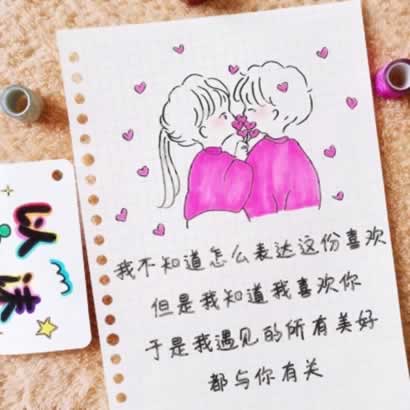 我不知道怎么表达这份喜欢
但是我知道我喜欢你
于是我遇见的所有美好
都与你有关
认读